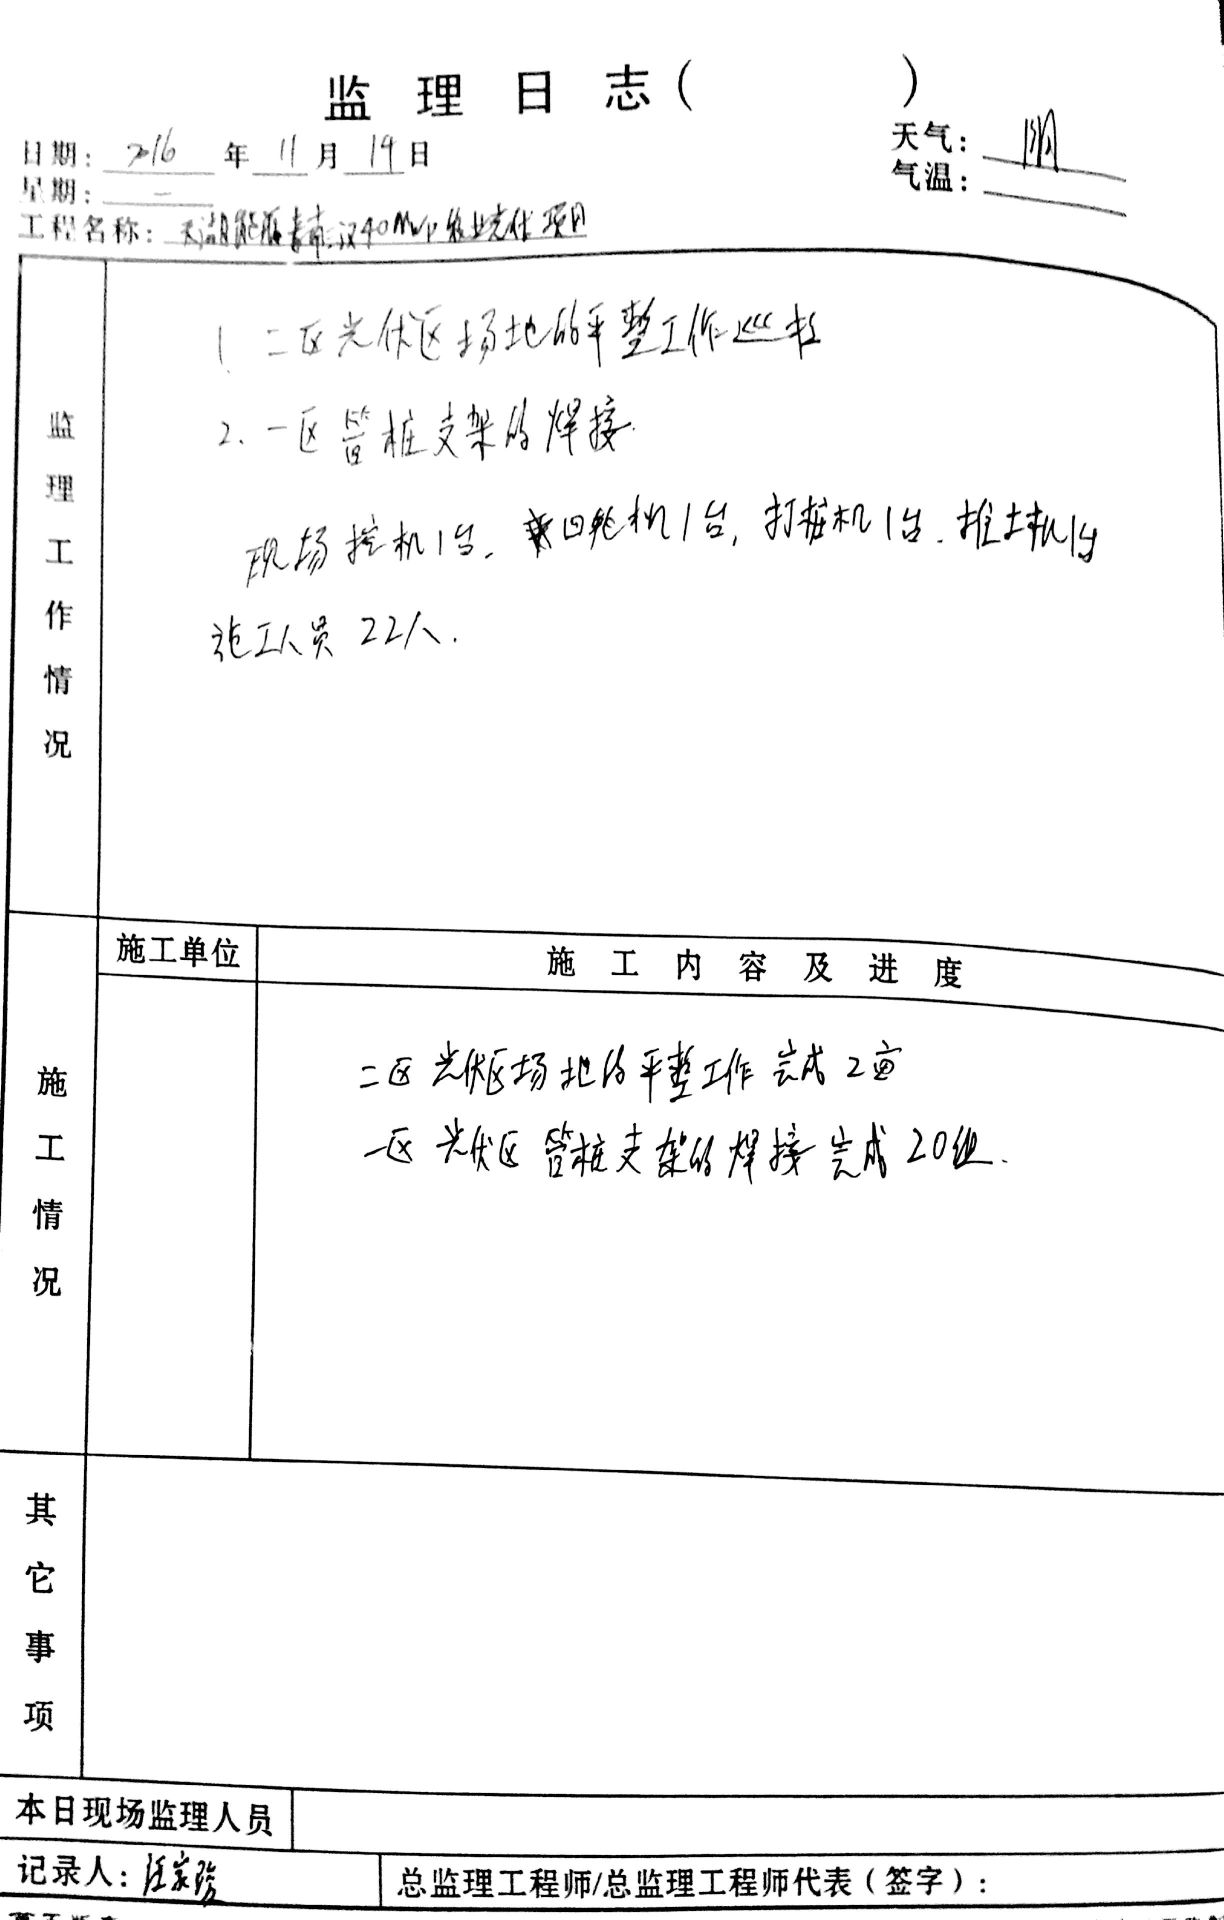 监理日志（ ）
日期： 2016 年 11 月 14 日
天气： 阴
星期： 一
气温：
工程名称： 天湖能源 40MWp农业光伏项目
监理工作情况
1. 二区光伏区场地的平整工作巡检
2. 一区管桩支架的焊接.
现场挖机1台. 四轮机1台, 打桩机1台. 推土机1台
施工人员 22人.
施工单位
施工内容及进度
施工情况
二区光伏区场地的平整工作完成2亩
一区光伏区管桩支架的焊接完成20组.
其它事项
本日现场监理人员
记录人： 汪家
总监理工程师/总监理工程师代表（签字）：